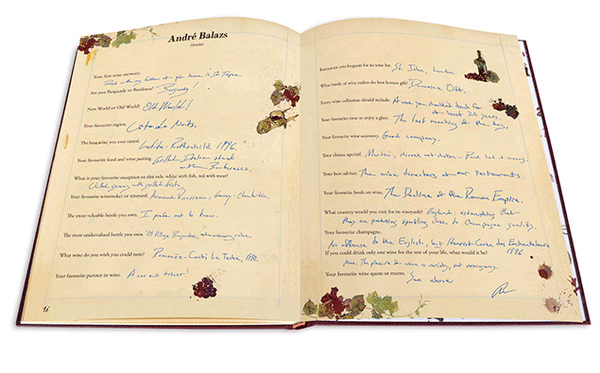 André Balazs
Hotelier
Your first wine memory:
with my father at a in St Tropez
Are you Burgundy or Bordeaux? Burgundy!
New World or Old World? Old World!
Your favourite region: Côte de Nuits.
The best wine you ever tasted: Lafite-Rothschild 1896.
Your favourite food and wine pairing: Grilled Italian steak
with Barbaresco.
What is your favourite exception to this rule: white with fish, red with meat?
Chilled
Your favourite winemaker or vineyard: Armand Rousseau, Gevrey-Chambertin
The most valuable bottle you own: I prefer not to know.
The most undervalued bottle you own: '09
What wine do you wish you could taste? Romanée-Conti La Tache, 1990.
Your favourite partner in wine:
Restaurant you frequent for its wine list: St. John, London.
What bottle of wine makes the best hostess gift? Domaine Ott.
Every wine collection should include: A wine you should not touch for
at least 20 years.
Your favourite time to enjoy a glass: The last meeting of the day.
Your favourite wine accessory: Good company.
Your choice aperitif: Martini, stirred, not shaken - Bond had it wrong.
Your best advisor: The wine directors at our restaurants.
Your favourite book on wine: The Decline of the Roman Empire.
What country would you visit for its vineyards? England; astonishing that
they are producing sparkling close to Champagne quality.
Your favourite champagne:
No offence to the English, but
1996
If you could drink only one wine for the rest of your life, what would it be?
None. The pleasure of wine is variety, not monogamy.
Your favourite wine quote or motto:
See above